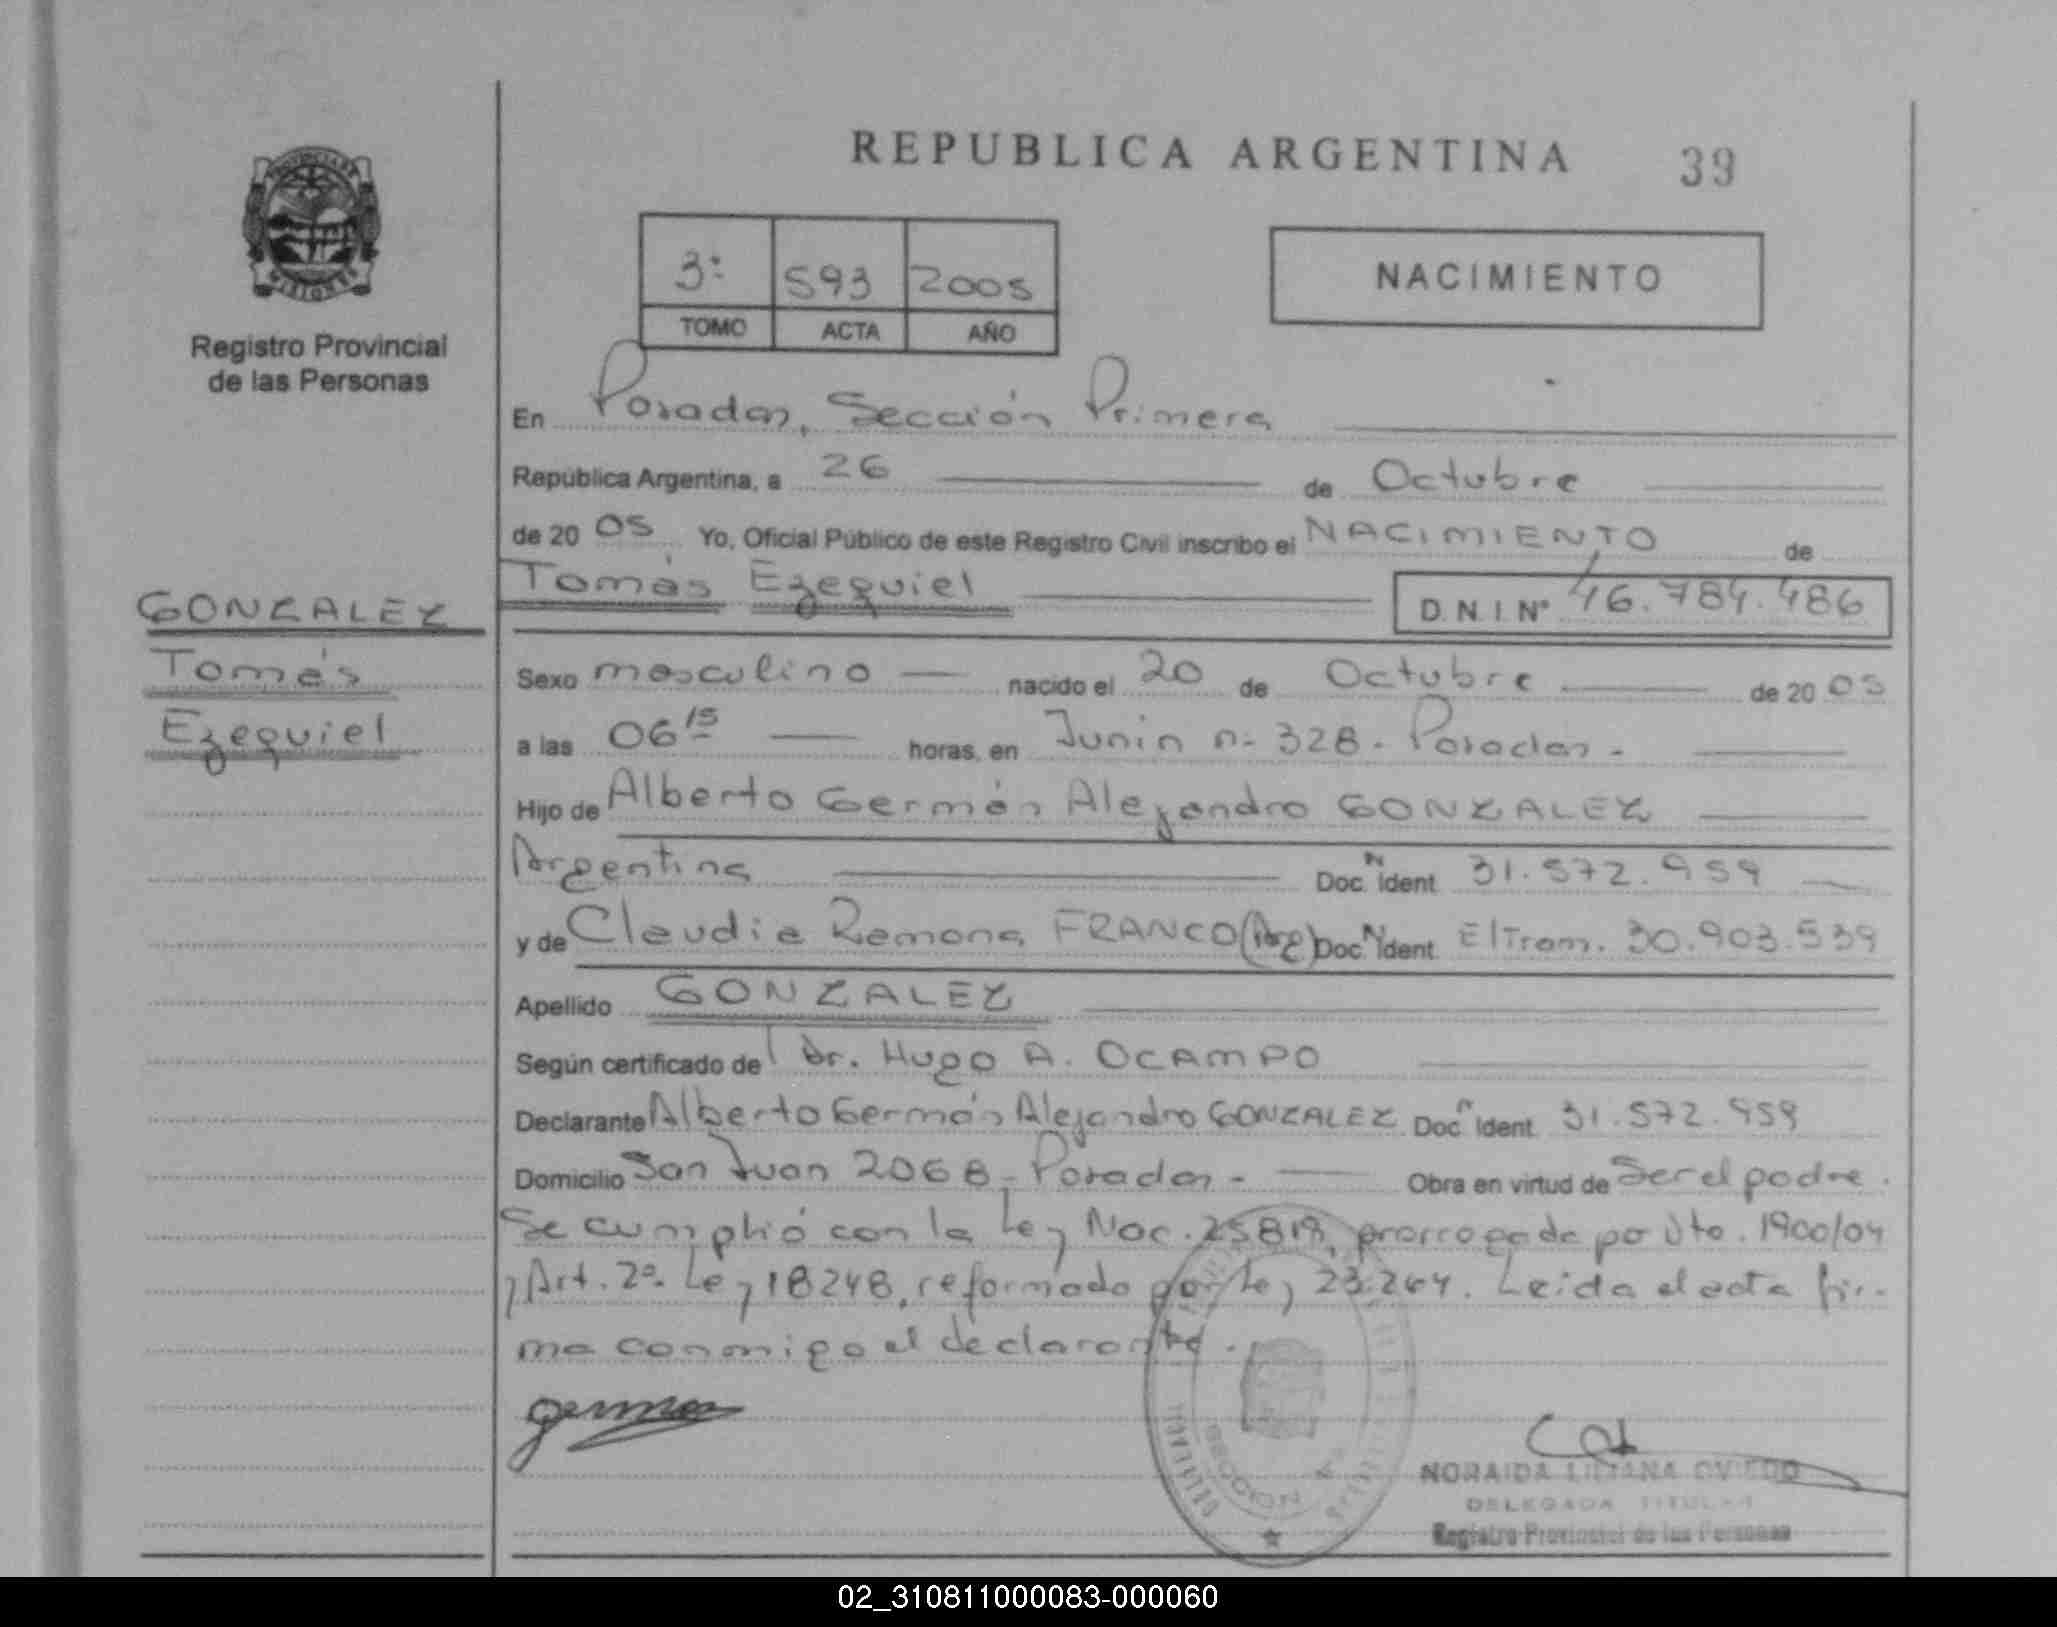 REPUBLICA ARGENTINA 39
PROVINCIA DE
MISIONES
Registro Provincial
de las Personas
3º 593 2005
TOMO ACTA AÑO
NACIMIENTO
En Posadas, Sección Primera
República Argentina, a 26 de Octubre
de 20 05 Yo, Oficial Público de este Registro Civil inscribo el NACIMIENTO de
Tomás Ezequiel D.N.I. Nº 46.784.486
GONZALEZ
Tomás
Ezequiel
Sexo masculino nacido el 20 de Octubre de 20 05
a las 06 15 horas, en Junin n- 328 - Posadas -
Hijo de Alberto Germán Alejandro GONZALEZ
Argentina Doc. N Ident. 31.572.959
y de Claudia Ramona FRANCO (Arg) Doc. N Ident. El Tram. 30.903.539
Apellido GONZALEZ
Según certificado del Dr. Hugo A. OCAMPO
Declarante Alberto Germán Alejandro GONZALEZ Doc. n Ident. 31.572.959
Domicilio San Juan 2068 - Posadas - Obra en virtud de Ser el padre.
Se cumplió con la Ley Nac. 25819, prorrogada po Dto. 1900/04
y Art. 2º. Ley 18248, reformado por Ley 23.264. Leida el acta fir-
ma conmigo el declarante.
german
SECCION
NORAIDA LILIANA OVIEDO
DELEGADA TITULAR
Registro Provincial de las Personas
02_310811000083-000060